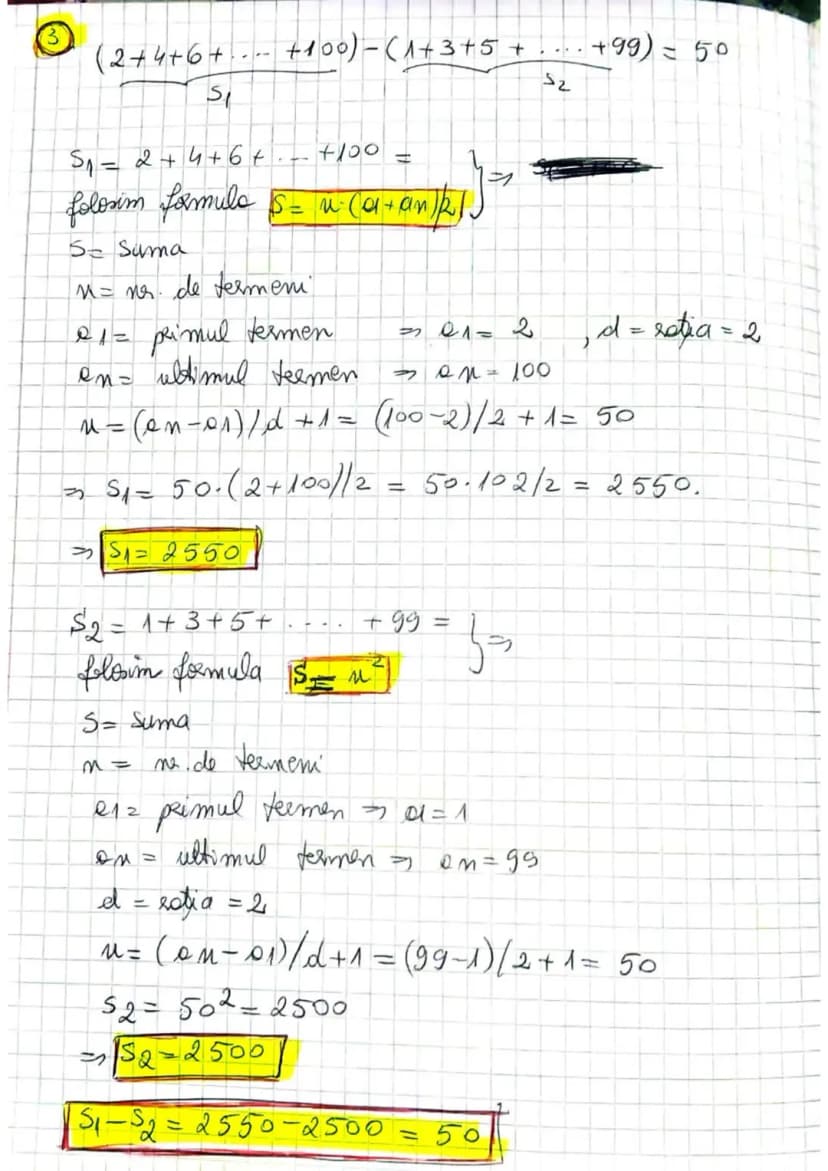 3
(2+4+6+....+100)-(1+3+5+....+99)=50
S1 S2
S1= 2+4+6+...+100 =
folosim formula S= n·(a1+an)/2 } =>
S= Suma
n= nr. de termeni
a1= primul termen => a1= 2 , d = rația = 2
an= ultimul termen => an= 100
n=(an-a1)/d+1= (100-2)/2+1= 50
=> S1= 50·(2+100)/2 = 50·102/2 = 2550.
=> S1= 2550
S2= 1+3+5+.....+99 = } =>
folosim formula S= n²
S= Suma
n= nr. de termeni
a1= primul termen => a1=1
an= ultimul termen => an=99
d = rația = 2
n= (an-a1)/d+1=(99-1)/2+1= 50
S2= 50²= 2500
=> S2=2500
S1-S2= 2550-2500 = 50